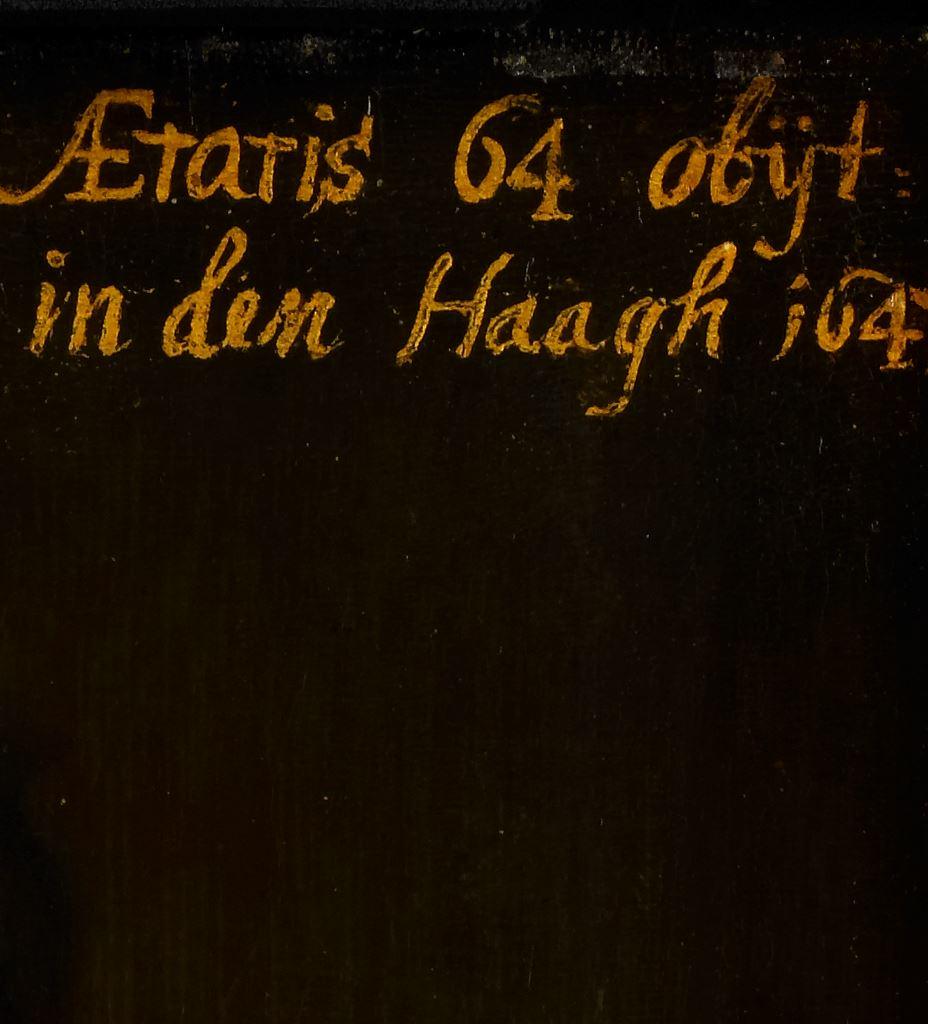 Ætatis 64 obijt:
in den Haagh 164